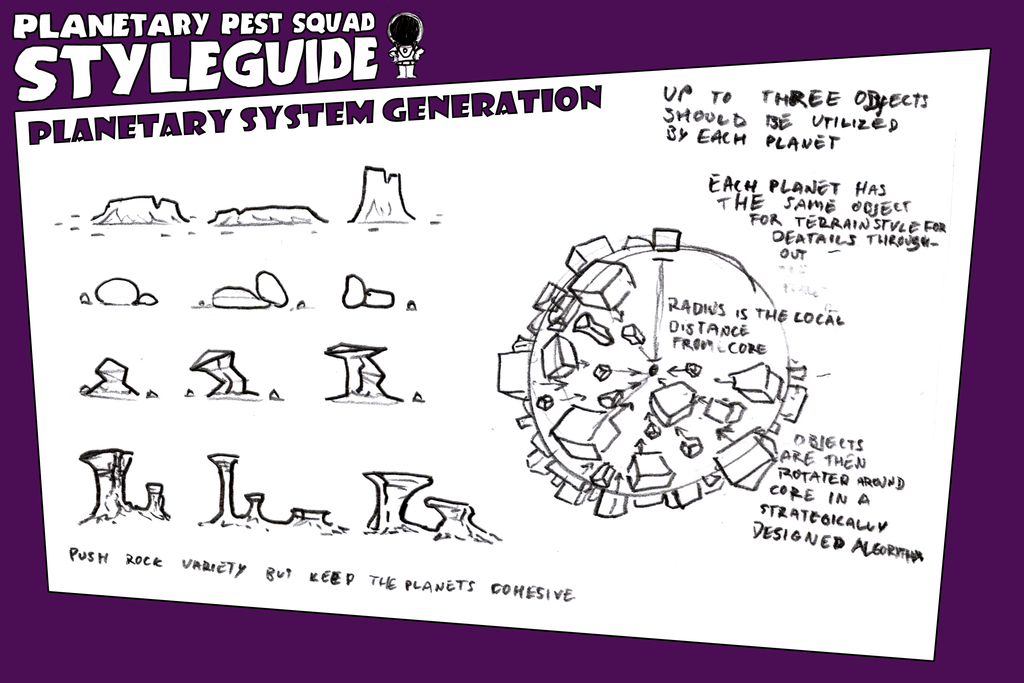 PLANETARY PEST SQUAD
STYLEGUIDE
PLANETARY SYSTEM GENERATION
UP TO THREE OBJECTS
SHOULD BE UTILIZED
BY EACH PLANET
EACH PLANET HAS
THE SAME OBJECT
FOR TERRAIN STYLE FOR
DEATAILS THROUGH-
OUT
RADIUS IS THE LOCAL
DISTANCE
FROM CORE
OBJECTS
ARE THEN
ROTATED AROUND
CORE IN A
STRATEGICALLY
DESIGNED ALGORITHM
PUSH ROCK VARIETY BUT KEEP THE PLANETS COHESIVE